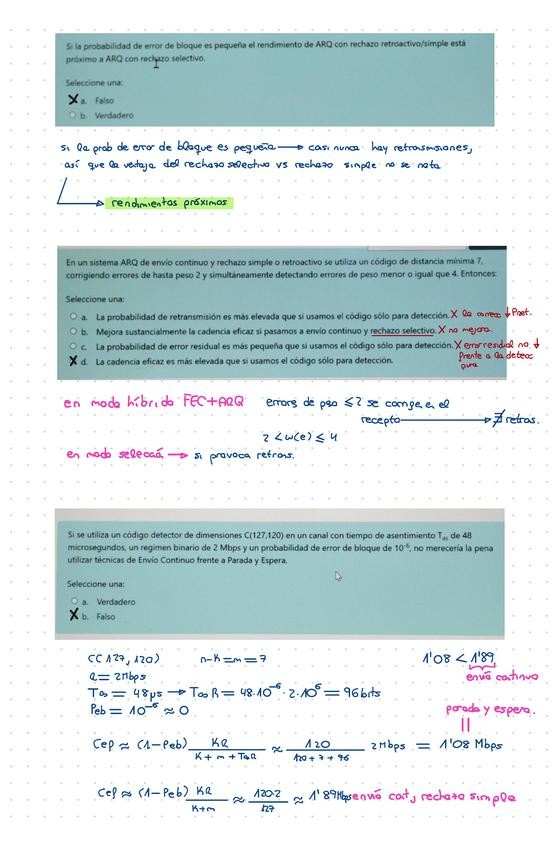 Si la probabilidad de error de bloque es pequeña el rendimiento de ARQ con rechazo retroactivo/simple está
próximo a ARQ con rechazo selectivo.
Seleccione una:
X a. Falso
b. Verdadero
si la prob de error de bloque es pequeña → casi nunca hay retransmisiones,
así que la ventaja del rechazo selectivo vs rechazo simple no se nota
rendimientos próximos
En un sistema ARQ de envío continuo y rechazo simple o retroactivo se utiliza un código de distancia mínima 7,
corrigiendo errores de hasta peso 2 y simultáneamente detectando errores de peso menor o igual que 4. Entonces:
Seleccione una:
a. La probabilidad de retransmisión es más elevada que si usamos el código sólo para detección. X la correc ↓ Pret.
b. Mejora sustancialmente la cadencia eficaz si pasamos a envío continuo y rechazo selectivo. X no mejora.
c. La probabilidad de error residual es más pequeña que si usamos el código sólo para detección. X error residual no ↓
frente a la detecc
pura
X d. La cadencia eficaz es más elevada que si usamos el código sólo para detección.
en modo híbrido FEC+ARQ errores de peso ≤2 se corrige en el
receptor → ∄ retras.
2 < w(e) ≤ 4
en modo → si provoca retrans.
Si se utiliza un código detector de dimensiones C(127,120) en un canal con tiempo de asentimiento Tas de 48
microsegundos, un regimen binario de 2 Mbps y un probabilidad de error de bloque de 10⁻⁶, no merecería la pena
utilizar técnicas de Envío Continuo frente a Parada y Espera.
Seleccione una:
a. Verdadero
X b. Falso
C(127,120) n-k=m=7 1'08 < 1'89
R=2Mbps envío continuo
Tas = 48µs → Tas R = 48·10⁻⁶·2·10⁶ = 96 bits
Peb = 10⁻⁶ ≈ 0 parada y espera.
Cef ≈ (1-Peb) KR / K+m+TasR ≈ 120 / 120+7+96 2Mbps = 1'08 Mbps
Cef ≈ (1-Peb) KR / K+m ≈ 120·2 / 127 ≈ 1'89Mbps envío cont, rechazo simple